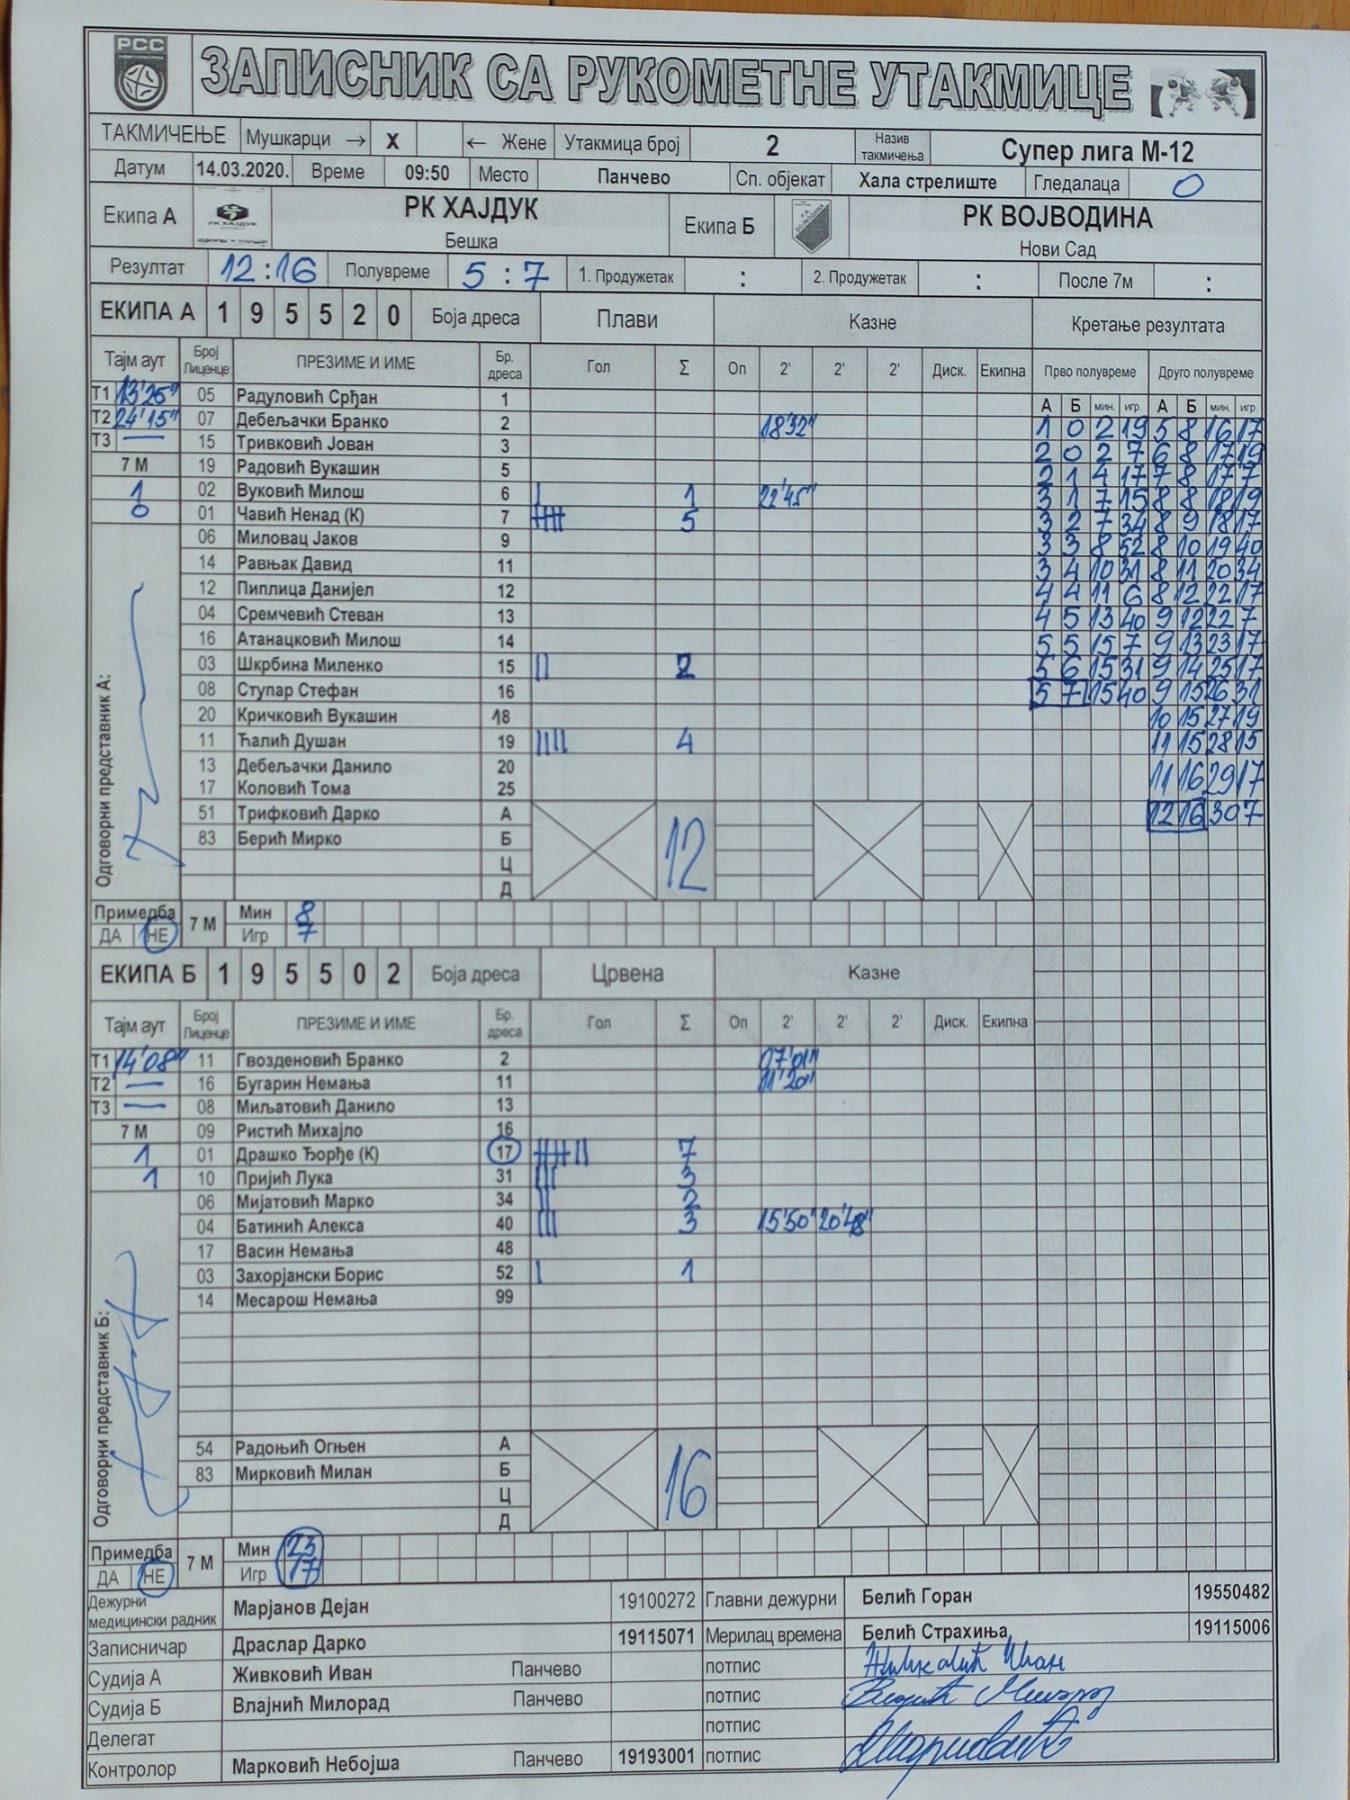 РСС
ЗАПИСНИК СА РУКОМЕТНЕ УТАКМИЦЕ
ТАКМИЧЕЊЕ Мушкарци → X ← Жене Утакмица број 2 Назив такмичења Супер лига М-12
Датум 14.03.2020. Време 09:50 Место Панчево Сп. објекат Хала стрелиште Гледалаца 0
Екипа А РК ХАЈДУК Бешка Екипа Б РК ВОЈВОДИНА Нови Сад
Резултат 12:16 Полувреме 5:7 1. Продужетак : 2. Продужетак : После 7м :
ЕКИПА А 1 9 5 5 2 0 Боја дреса Плави Казне Кретање резултата
Тајм аут Број Лиценце ПРЕЗИМЕ И ИМЕ Бр. дреса Гол Σ Оп 2' 2' 2' Диск. Екипна Прво полувреме Друго полувреме
А Б мин. игр. А Б мин. игр.
Т1 13'25" 05 Радуловић Срђан 1
Т2 24'15" 07 Дебељачки Бранко 2 18'32" 1 0 2 19 5 8 16 17
Т3 — 15 Тривковић Јован 3 2 0 2 7 6 8 17 19
7 М 19 Радовић Вукашин 5 2 1 4 17 7 8 17 7
1 02 Вуковић Милош 6 | 1 22'45" 3 1 7 15 8 8 18 19
0 01 Чавић Ненад (К) 7 5 3 2 7 34 8 9 18 17
06 Миловац Јаков 9 3 3 8 52 8 10 19 40
14 Равњак Давид 11 3 4 10 31 8 11 20 34
12 Пиплица Данијел 12 4 4 11 6 8 12 22 17
04 Сремчевић Стеван 13 4 5 13 40 9 12 22 7
16 Атанацковић Милош 14 5 5 15 7 9 13 23 17
03 Шкрбина Миленко 15 || 2 5 6 15 31 9 14 25 17
08 Ступар Стефан 16 5 7 15 40 9 15 26 31
20 Кричковић Вукашин 18 10 15 27 19
11 Ћалић Душан 19 |||| 4 11 15 28 15
13 Дебељачки Данило 20
17 Коловић Тома 25 11 16 29 17
51 Трифковић Дарко А 12 16 30 7
83 Берић Мирко Б 12
Ц
Д
Одговорни представник А:
Примедба ДА НЕ 7 М Мин 8
Игр 7
ЕКИПА Б 1 9 5 5 0 2 Боја дреса Црвена Казне
Тајм аут Број Лиценце ПРЕЗИМЕ И ИМЕ Бр. дреса Гол Σ Оп 2' 2' 2' Диск. Екипна
Т1 14'08" 11 Гвозденовић Бранко 2 07'01"
Т2 — 16 Бугарин Немања 11 11'20"
Т3 — 08 Миљатовић Данило 13
7 М 09 Ристић Михајло 16
1 01 Драшко Ђорђе (К) 17 7
1 10 Пријић Лука 31 ||| 3
06 Мијатовић Марко 34 || 2
04 Батинић Алекса 40 ||| 3 15'50" 20'48"
17 Васин Немања 48
03 Захорјански Борис 52 | 1
14 Месарош Немања 99
54 Радоњић Огњен А
83 Мирковић Милан Б 16
Ц
Д
Одговорни представник Б:
Примедба ДА НЕ 7 М Мин 23
Игр 17
Дежурни медицински радник Марјанов Дејан 19100272 Главни дежурни Белић Горан 19550482
Записничар Драслар Дарко 19115071 Мерилац времена Белић Страхиња 19115006
Судија А Живковић Иван Панчево потпис Живковић Иван
Судија Б Влајнић Милорад Панчево потпис
Делегат потпис
Контролор Марковић Небојша Панчево 19193001 потпис